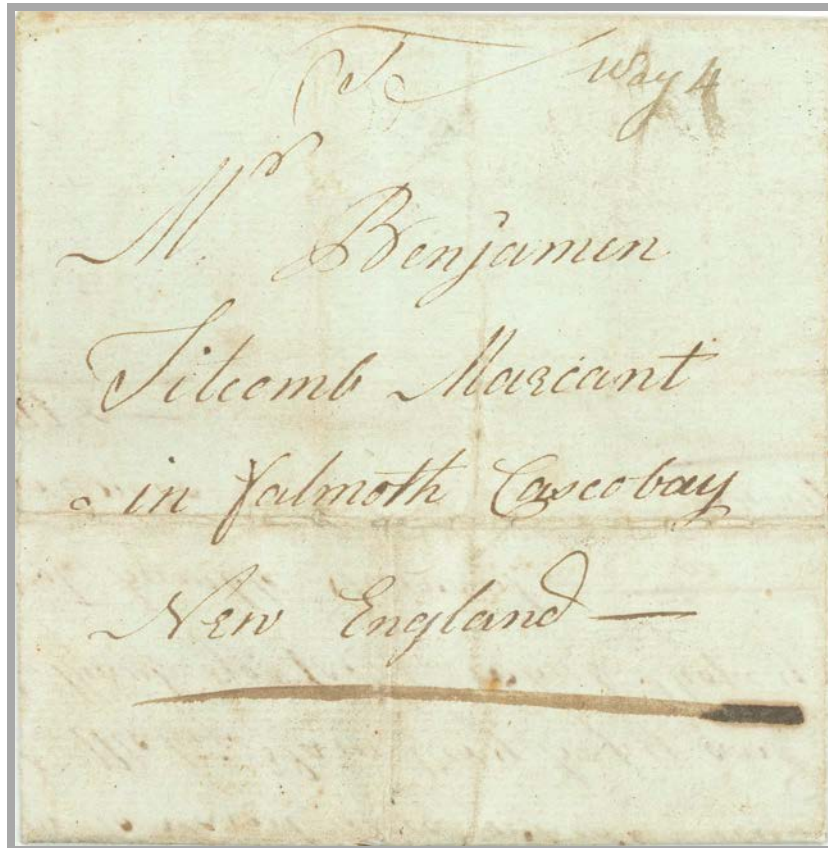 To Way 4
Mr Benjamin
Titcomb Marcant
in falmoth Cascobay
New England —